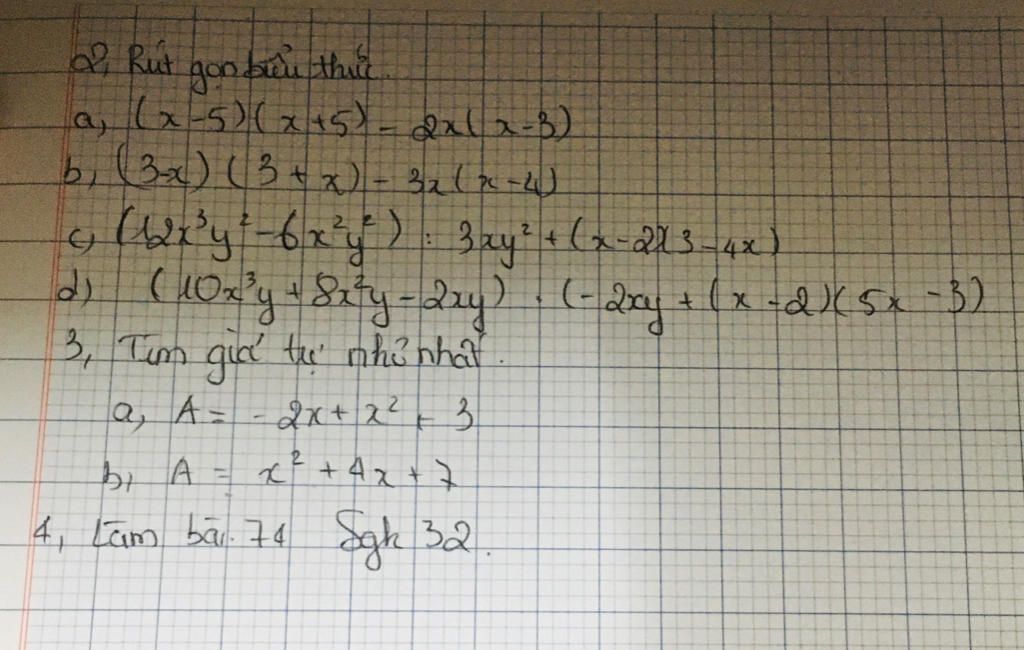 2, Rút gọn biểu thức.
a, (x-5)(x+5) - 2x(x-3)
b, (3-x)(3+x) - 3x(x-4)
c, (12x³y² - 6x²y²) : 3xy² + (x-2)(3-4x)
d) (10x³y + 8x²y - 2xy) : (-2xy + (x-2)(5x-3)
3, Tìm giá trị nhỏ nhất.
a, A = -2x + x² + 3
b, A = x² + 4x + 7
4, Làm bài. 74 Sgk 32.